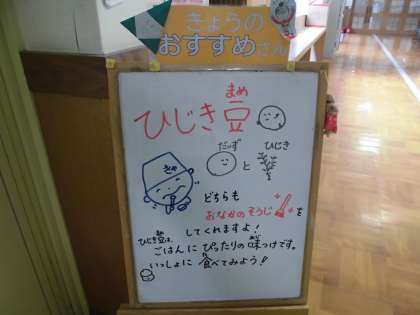 きょうの
おすすめさん
まめ
ひじき豆
だいず
ひじき
と
きゅ
どちらも
おなかのそうじを
してくれますよ！
ひじき豆は、
ごはんにぴったりの味つけです。
いっしょに食べてみよう！